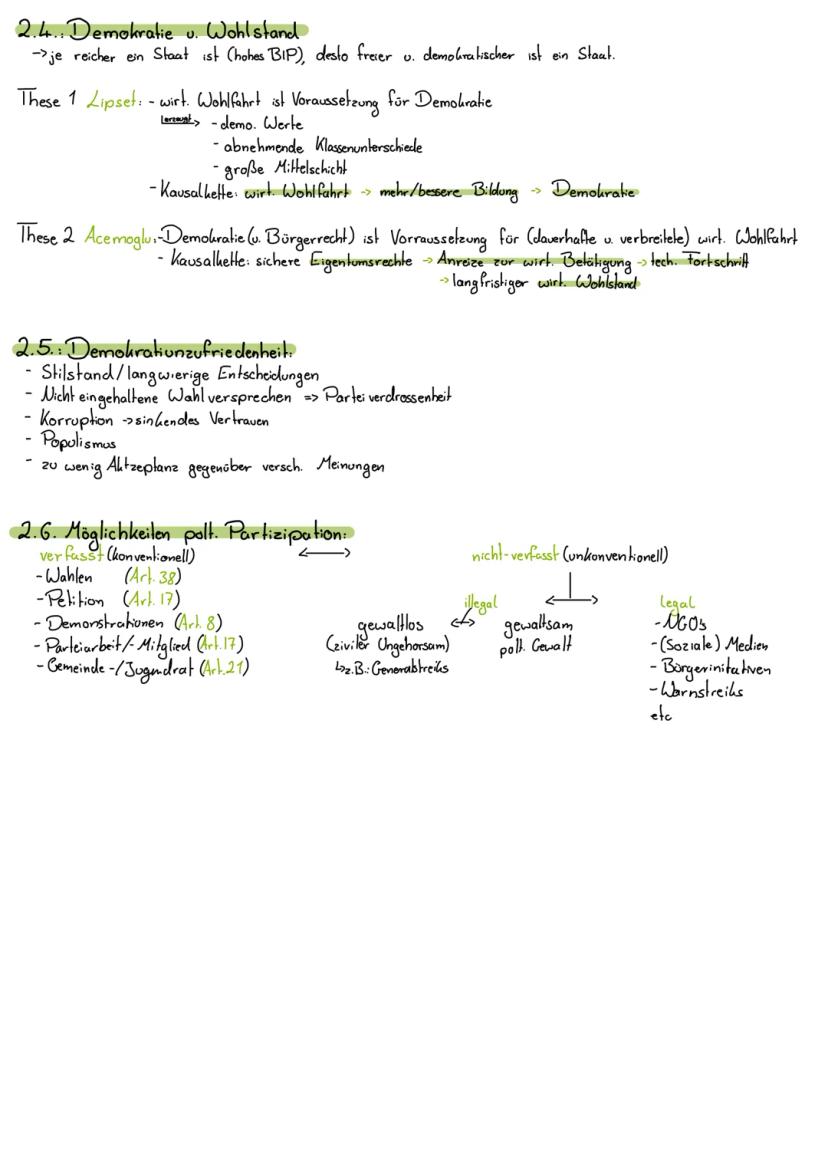 2.4.: Demokratie u. Wohlstand
→ je reicher ein Staat ist (hohes BIP), desto freier u. demokratischer ist ein Staat.
These 1 Lipset: - wirt. Wohlfahrt ist Voraussetzung für Demokratie
erzeugt> - demo. Werte
- abnehmende Klassenunterschiede
- große Mittelschicht
- Kausalkette: wirt. Wohlfahrt → mehr/bessere Bildung → Demokratie
These 2 Acemoglu: - Demokratie (u. Bürgerrecht) ist Vorraussetzung für (dauerhafte u. verbreitete) wirt. Wohlfahrt
- Kausalkette: sichere Eigentumsrechte → Anreize zur wirt. Betätigung → tech. Fortschritt
→ langfristiger wirt. Wohlstand
2.5.: Demokratiunzufriedenheit:
- Stilstand/langwierige Entscheidungen
- Nicht eingehaltene Wahlversprechen => Parteiverdrossenheit
- Korruption → sinkendes Vertrauen
- Populismus
- zu wenig Aktzeptanz gegenüber versch. Meinungen
2.6. Möglichkeiten polt. Partizipation:
verfasst (konventionell) ⟷ nicht-verfasst (unkonventionell)
- Wahlen (Art. 38)
- Petition (Art. 17)
- Demonstrationen (Art. 8)
- Parteiarbeit/-Mitglied (Art. 17)
- Gemeinde-/Jugndrat (Art. 21)
illegal ⟷ legal
gewaltlos ↔ gewaltsam
(ziviler Ungehorsam) polt. Gewalt
↳ z.B.: Generalstreiks
- NGOs
- (Soziale) Medien
- Bürgerinitativen
- Warnstreiks
etc